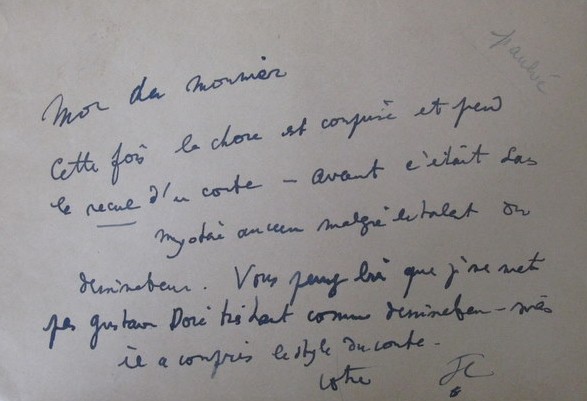 paulvé
Mon cher monnier
Cette fois la chose est confuse et perd
le recul d'un conte – avant c'était sans
mystère aucun malgré le talent du
dessinateur. Vous pensez bien que je ne mets
pas gustave Doré très haut comme dessinateur – mais
il a compris le style du conte –
votre JC